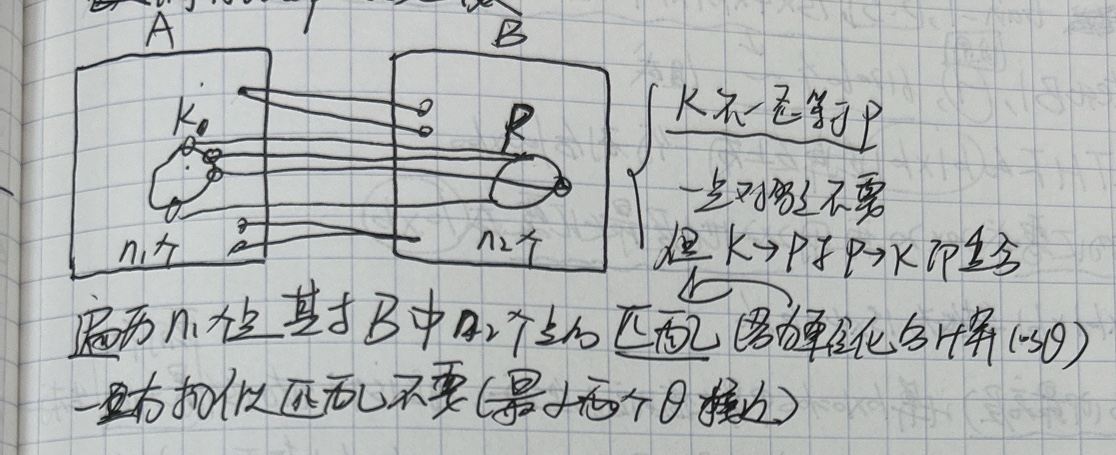 A B
K
P
n₁个 n₂个
K不一定等于P
一点对多点不要
但 K→P 和 P→K 即重合
遍历n₁个点 基于B中n₂个点的匹配 (因为单位化 会计算cosθ)
一旦有相似匹配不要(最小两个θ接近)